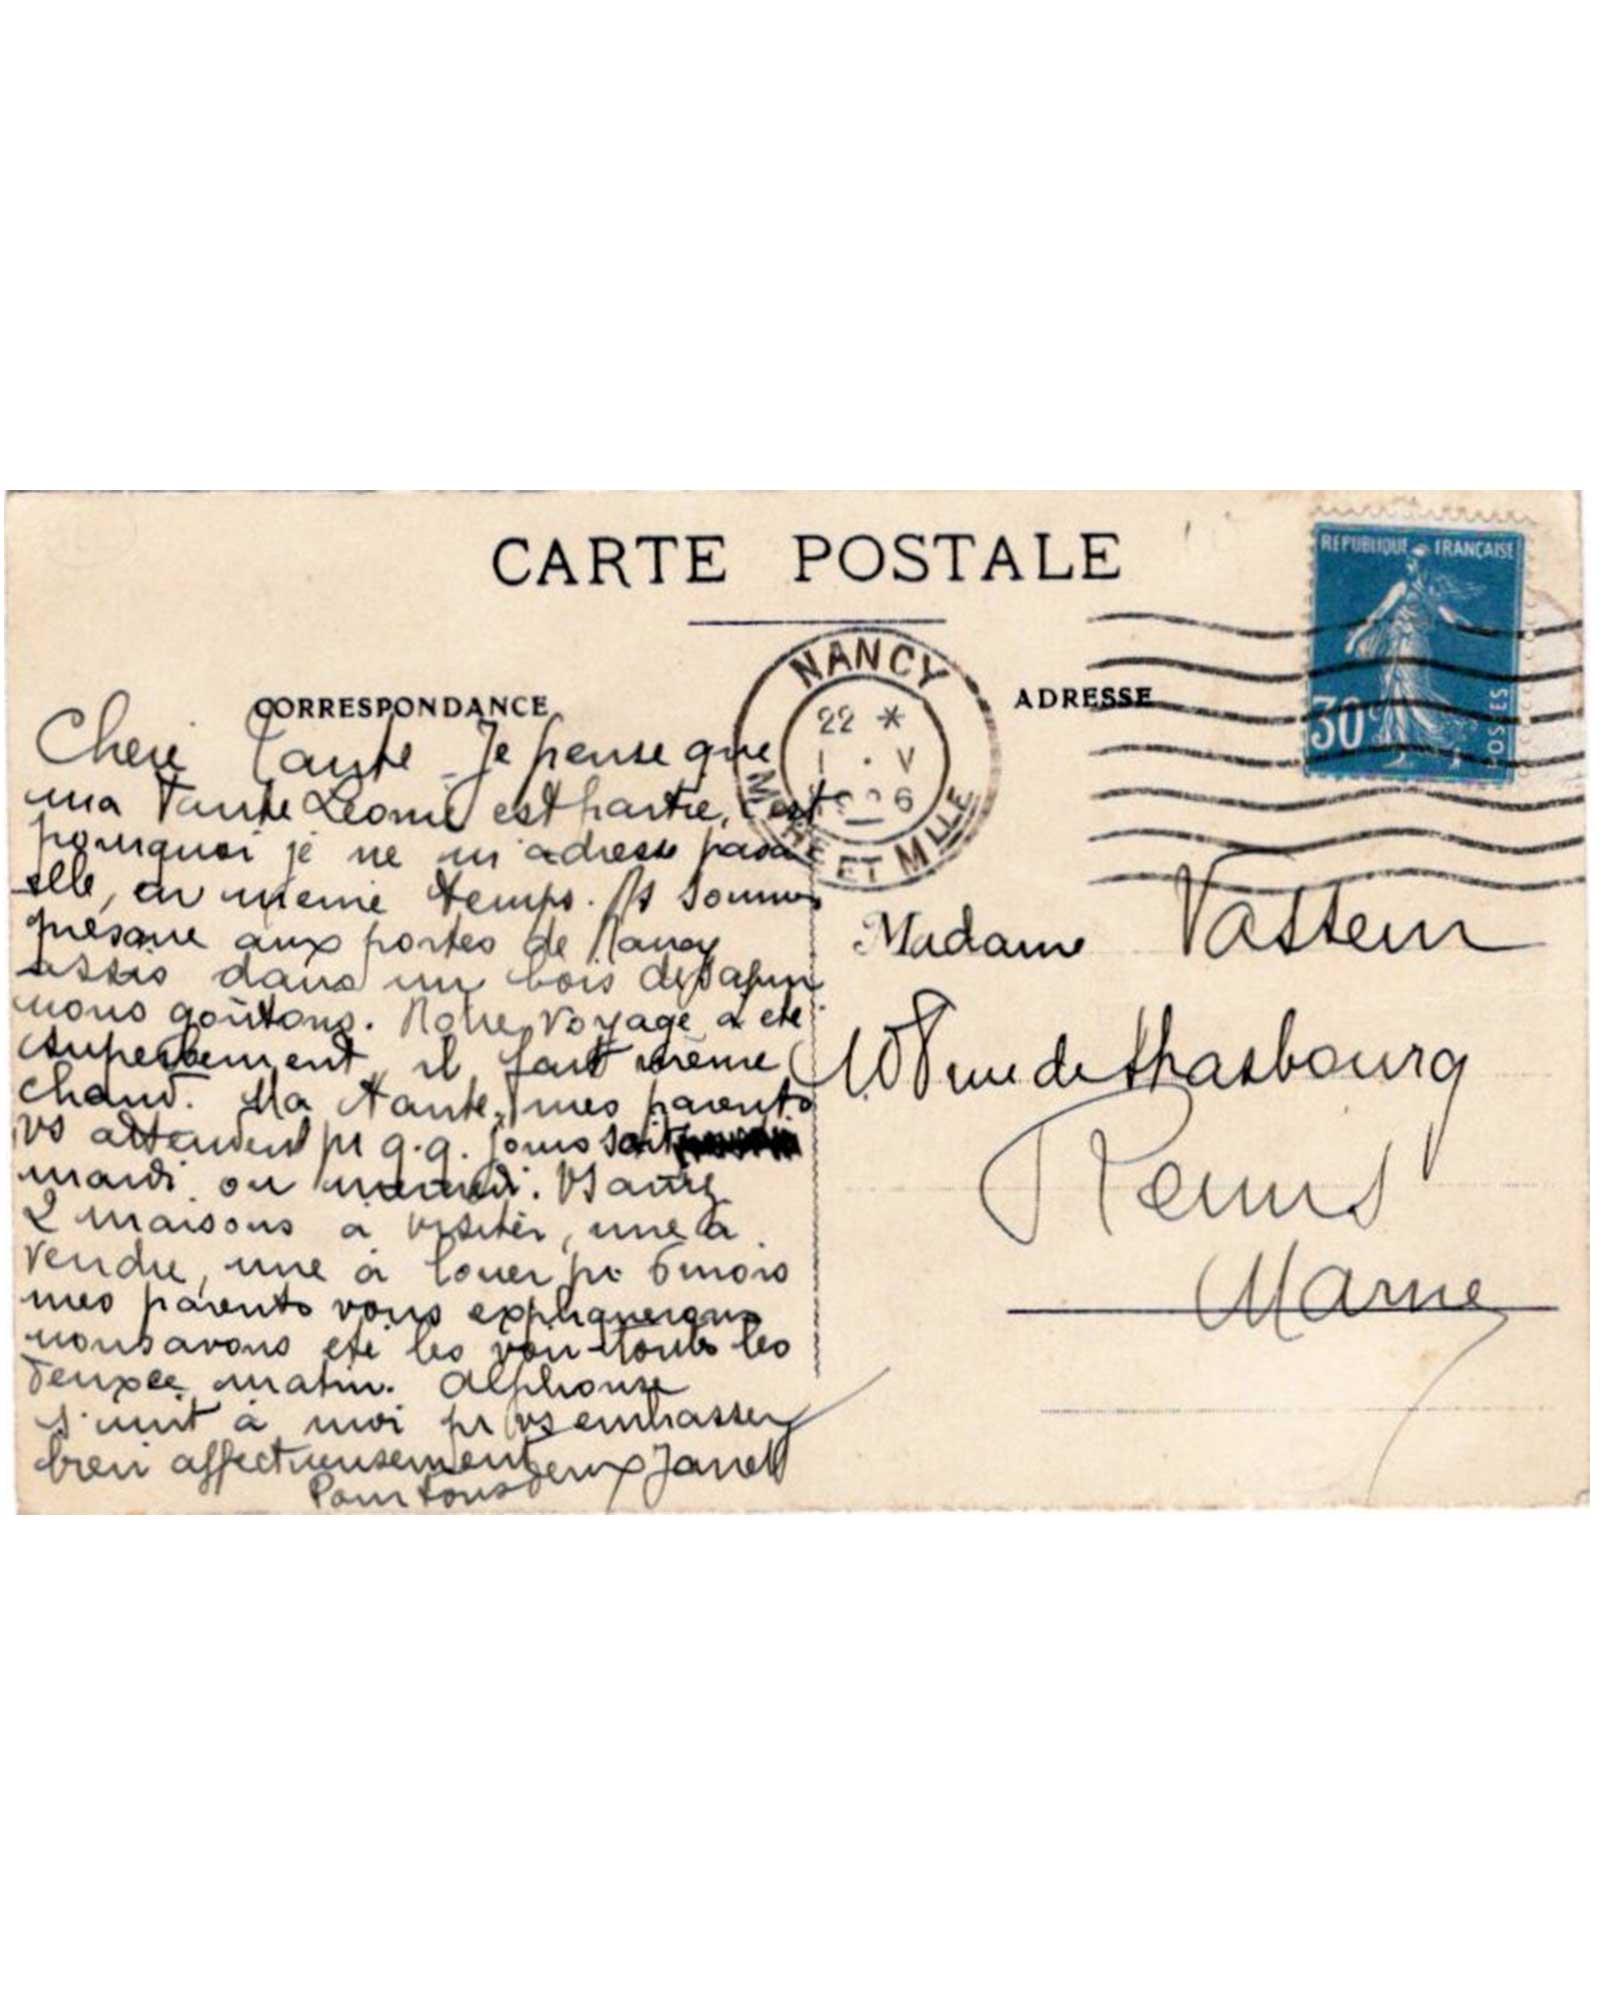 CARTE POSTALE
CORRESPONDANCE
Cheri Tante Je pense que
ma Tante Leonie est partie, c'est
pourquoi je ne m'adresse pas à
elle, en meme temps. Ns sommes
presque aux portes de Nancy
assis dans un bois de sapin
nous goûtons. Notre voyage a été
superbement il fait même
chaud. Ma tante, mes parents
vs attendent pr q.q. jours soit
mardi ou mercredi. Vs aurez
2 maisons à visiter, une à
vendre, une à louer pr 6 mois
mes parents vous expliquerons
nous avons été les voir toutes les
deux ce matin. Alphonse
s'unit à moi pr vs embrasser
bien affectueusement
Pour tous deux
NANCY
22 *
1 . V
MRTHE ET MLLE
ADRESSE
REPUBLIQUE FRANÇAISE
30c
POSTES
Madame Vasseur
rue de Strasbourg
Reims
Marne